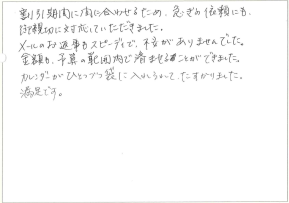 割引期間に間に合わせるため、急ぎの依頼にも、
親切に対応していただきました。
メールのお返事もスピーディで、不安がありませんでした。
金額も、予算の範囲内で済ませることができました。
カレンダーがひとつづつ袋に入れられていて、たすかりました。
満足です。